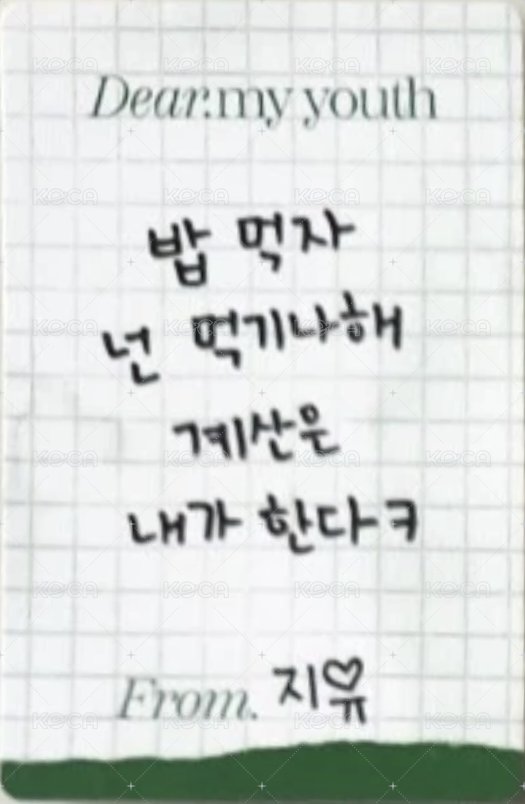 Dear.my youth
밥 먹자
넌 먹기나해
계산은
내가 한다ㅋ
From. 지유
KOCA